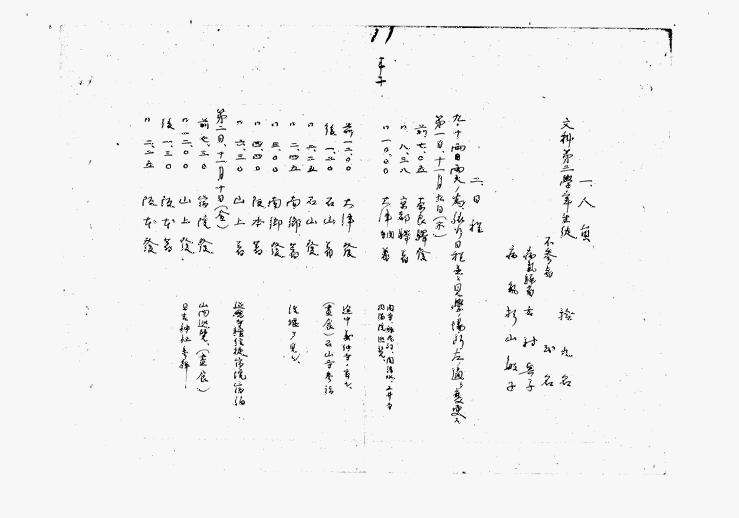 一、人員
文科第三學年生徒 拾九名
不參者 弐名
病氣 杉山敏子
二、日程
九・十兩日雨天ノ為旅行日程並ニ見學ノ場所左ノ通リ變更ス
第一日、十一月九日(木)
前七、〇五 奈良驛發
〃八、三八 京都驛着
〃一〇、〇〇 大津着
前一二、〇〇 大津發 途中義仲寺ニ寄ル
後一、二〇 石山着 (晝食)石山寺參詣
〃二、二五 石山發
〃二、四五 南郷着 洗堰ヲ見ル
〃三、〇〇 南郷發
〃四、四〇 坂本着
〃六、三〇 山上着 延暦寺宿院宿泊
第二日、十一月十日(金)
前七、三〇 宿院發 山内巡覽、(晝食)
〃一二、〇〇 山上發 日吉神社參拜
後一、三〇 坂本着
〃二、二五 坂本發